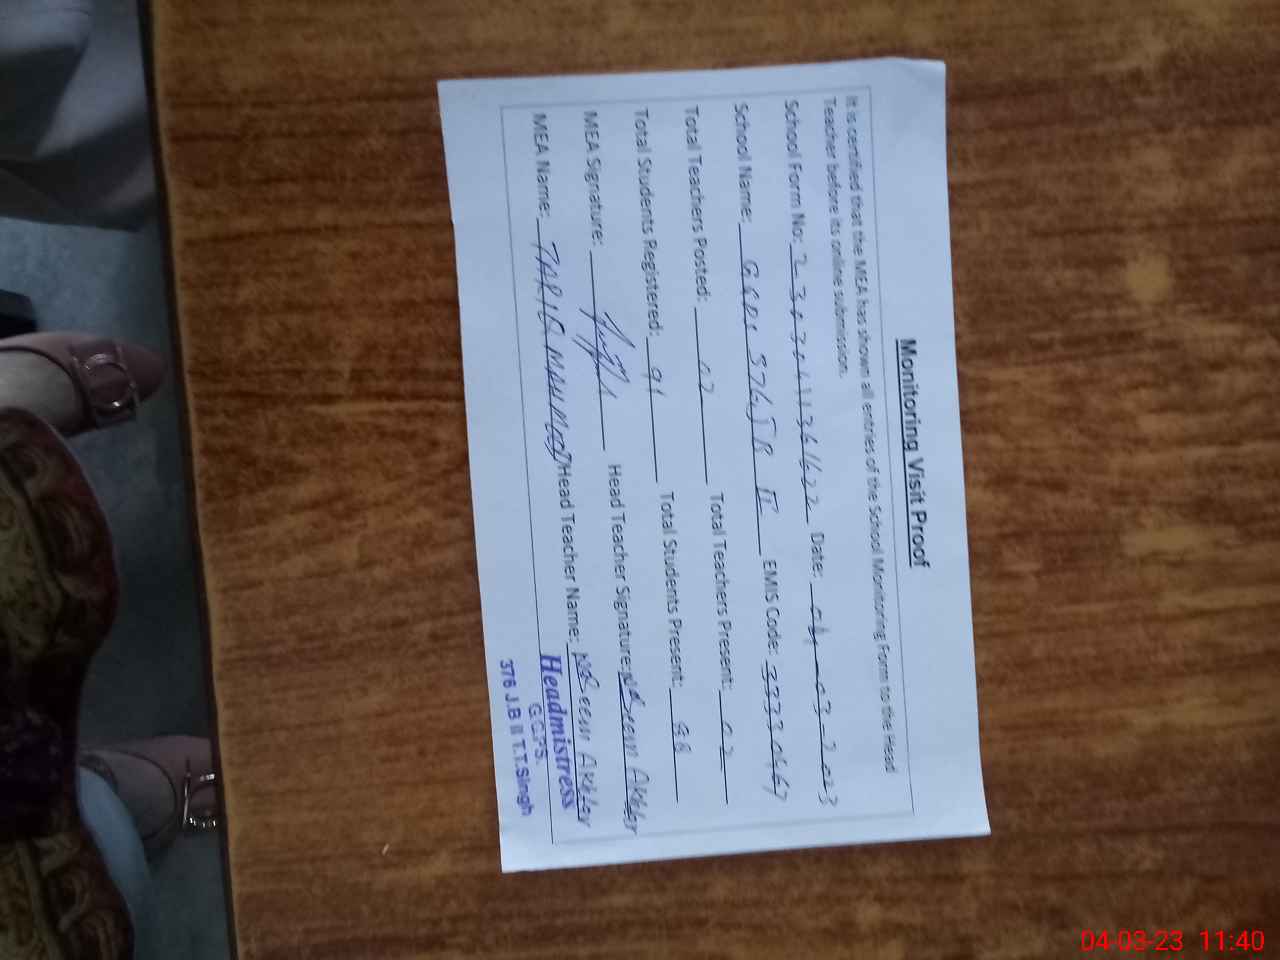 Monitoring Visit Proof
It is certified that the MEA has shown all entries of the School Monitoring Form to the Head
Teacher before its online submission.
School Form No: Date: 04-03-2023
School Name: GGPS 376 JB II EMIS Code: 33330467
Total Teachers Posted: 02 Total Teachers Present: 02
Total Students Registered: 91 Total Students Present:
MEA Signature: Head Teacher Signature: Akhter
MEA Name: TARIQ MAHMOOD Head Teacher Name: Akhter
Headmistress
376 J.B II T.T.Singh
04-03-23 11:40